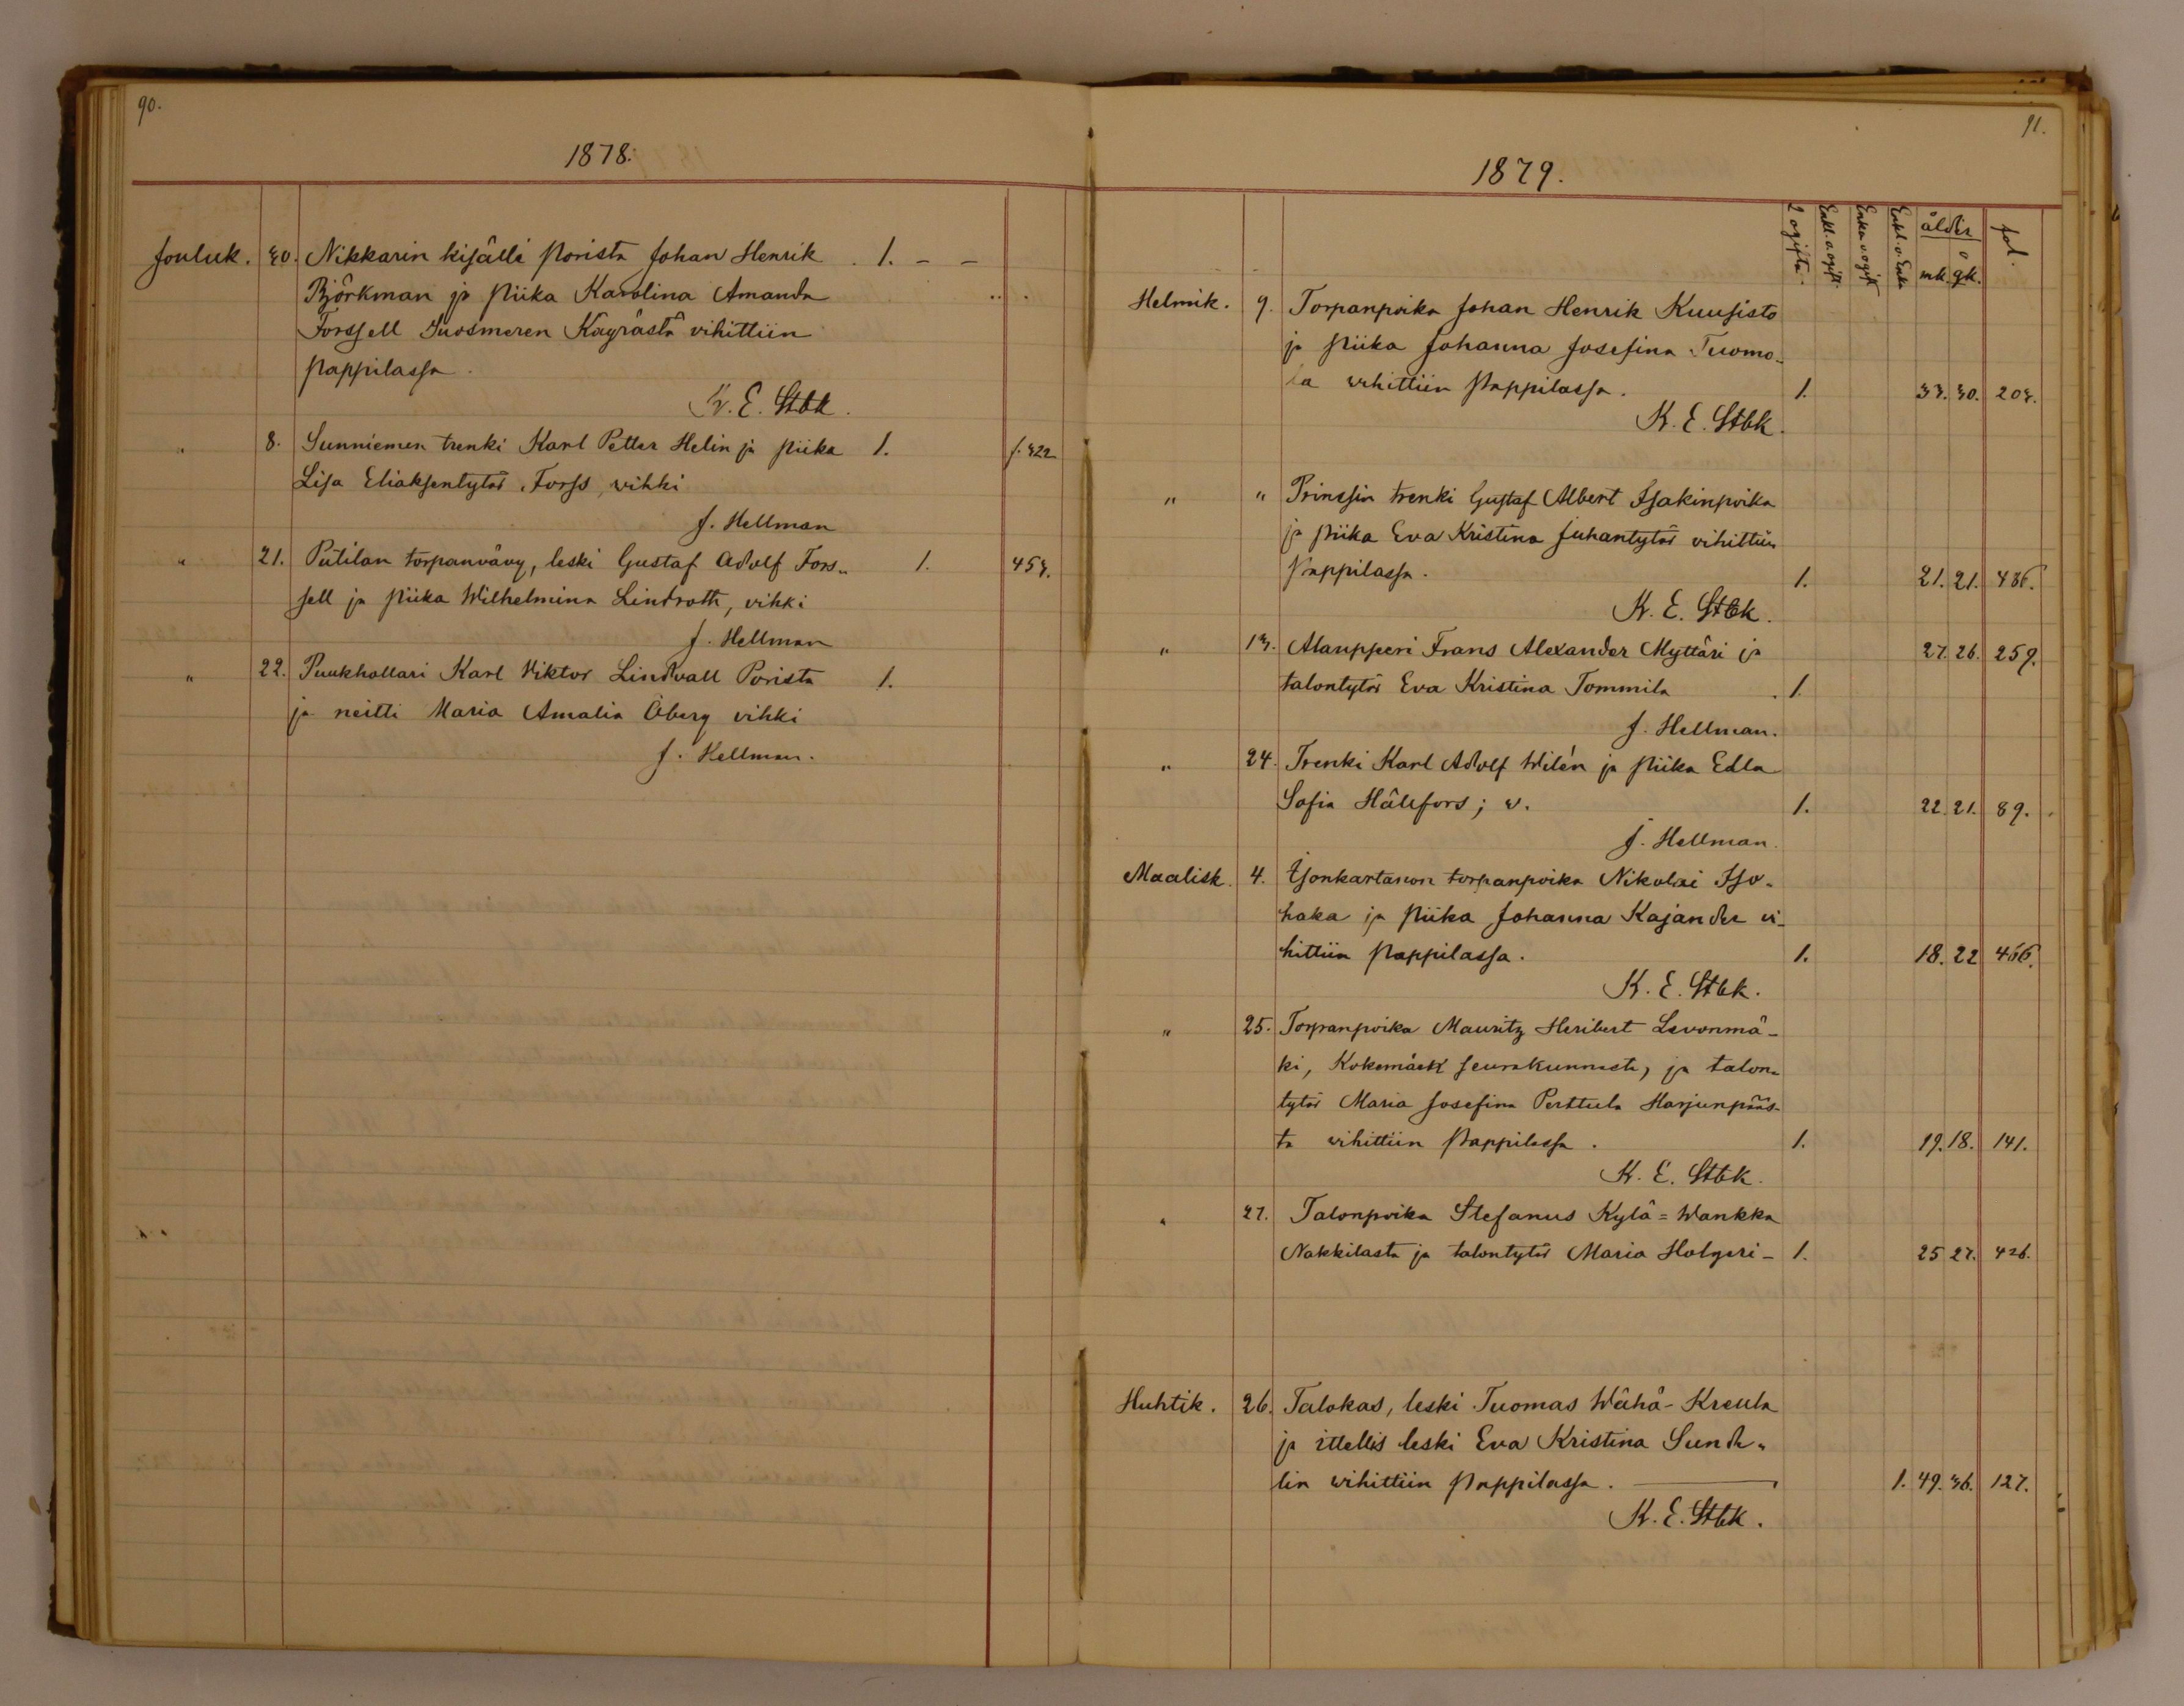 90.
1878.
Jouluk. 30. Nikkarin kisälli Porista Johan Henrik 1. - -
Björkman ja piika Karolina Amanda
Forssell Suosmeren Käyrästä vihittiin
pappilassa.
K. E. Stbk.
" 8. Sunniemen trenki Karl Petter Helin ja piika 1. f. 322
Lisa Eliaksentytär Forss, vihki
J. Hellman
" 21. Piitilan torpanvävy, leski Gustaf Adolf Fors- 1. 453.
sell ja piika Wilhelmina Lindroth, vihki
J. Hellman
" 22. Puukhollari Karl Viktor Lindvall Porista 1.
ja neitti Maria Amalia Åberg vihki
J. Hellman.
91.
1879.
2 ogifta. Enkl. o ogift. Enka o ogift Enkl. o. Enka ålder fol.
mk. qk.
Helmik. 9. Torpanpoika Johan Henrik Kuusisto
ja piika Johanna Josefina Tuomo-
la vihittiin Pappilassa. 1. 33. 30. 203.
K. E. Stbk.
" " Prinssin trenki Gustaf Albert Isakinpoika
ja piika Eva Kristina Juhantytär vihittiin
Pappilassa. 1. 21. 21. 486.
K. E. Stbk.
" 13. Alanpperi Frans Alexander Myttäri ja 27. 26. 259.
talontytär Eva Kristina Tommila 1.
J. Hellman.
" 24. Trenki Karl Adolf Wilén ja piika Edla
Sofia Hälifors; v. 1. 22. 21. 89.
J. Hellman.
Maalisk. 4. Isonkartanon torpanpoika Nikolai Iso-
haka ja piika Johanna Kajander vi-
hittiin Pappilassa. 1. 18. 22 466.
K. E. Stbk.
" 25. Torpanpoika Mauritz Heribert Levonmä-
ki, Kokemäen seurakunnasta, ja talon-
tytär Maria Josefina Perttula Harjunpääs-
tä vihittiin Pappilassa. 1. 19. 18. 141.
K. E. Stbk.
" 27. Talonpoika Stefanus Kylä=Wankka
Nakkilasta ja talontytär Maria Holgeri- 1. 25 27. 426.
Huhtik. 26. Talokas, leski Tuomas Wähä-Kreula
ja ittellis leski Eva Kristina Sunde-
lin vihittiin Pappilassa. 1. 49. 36. 127.
K. E. Stbk.